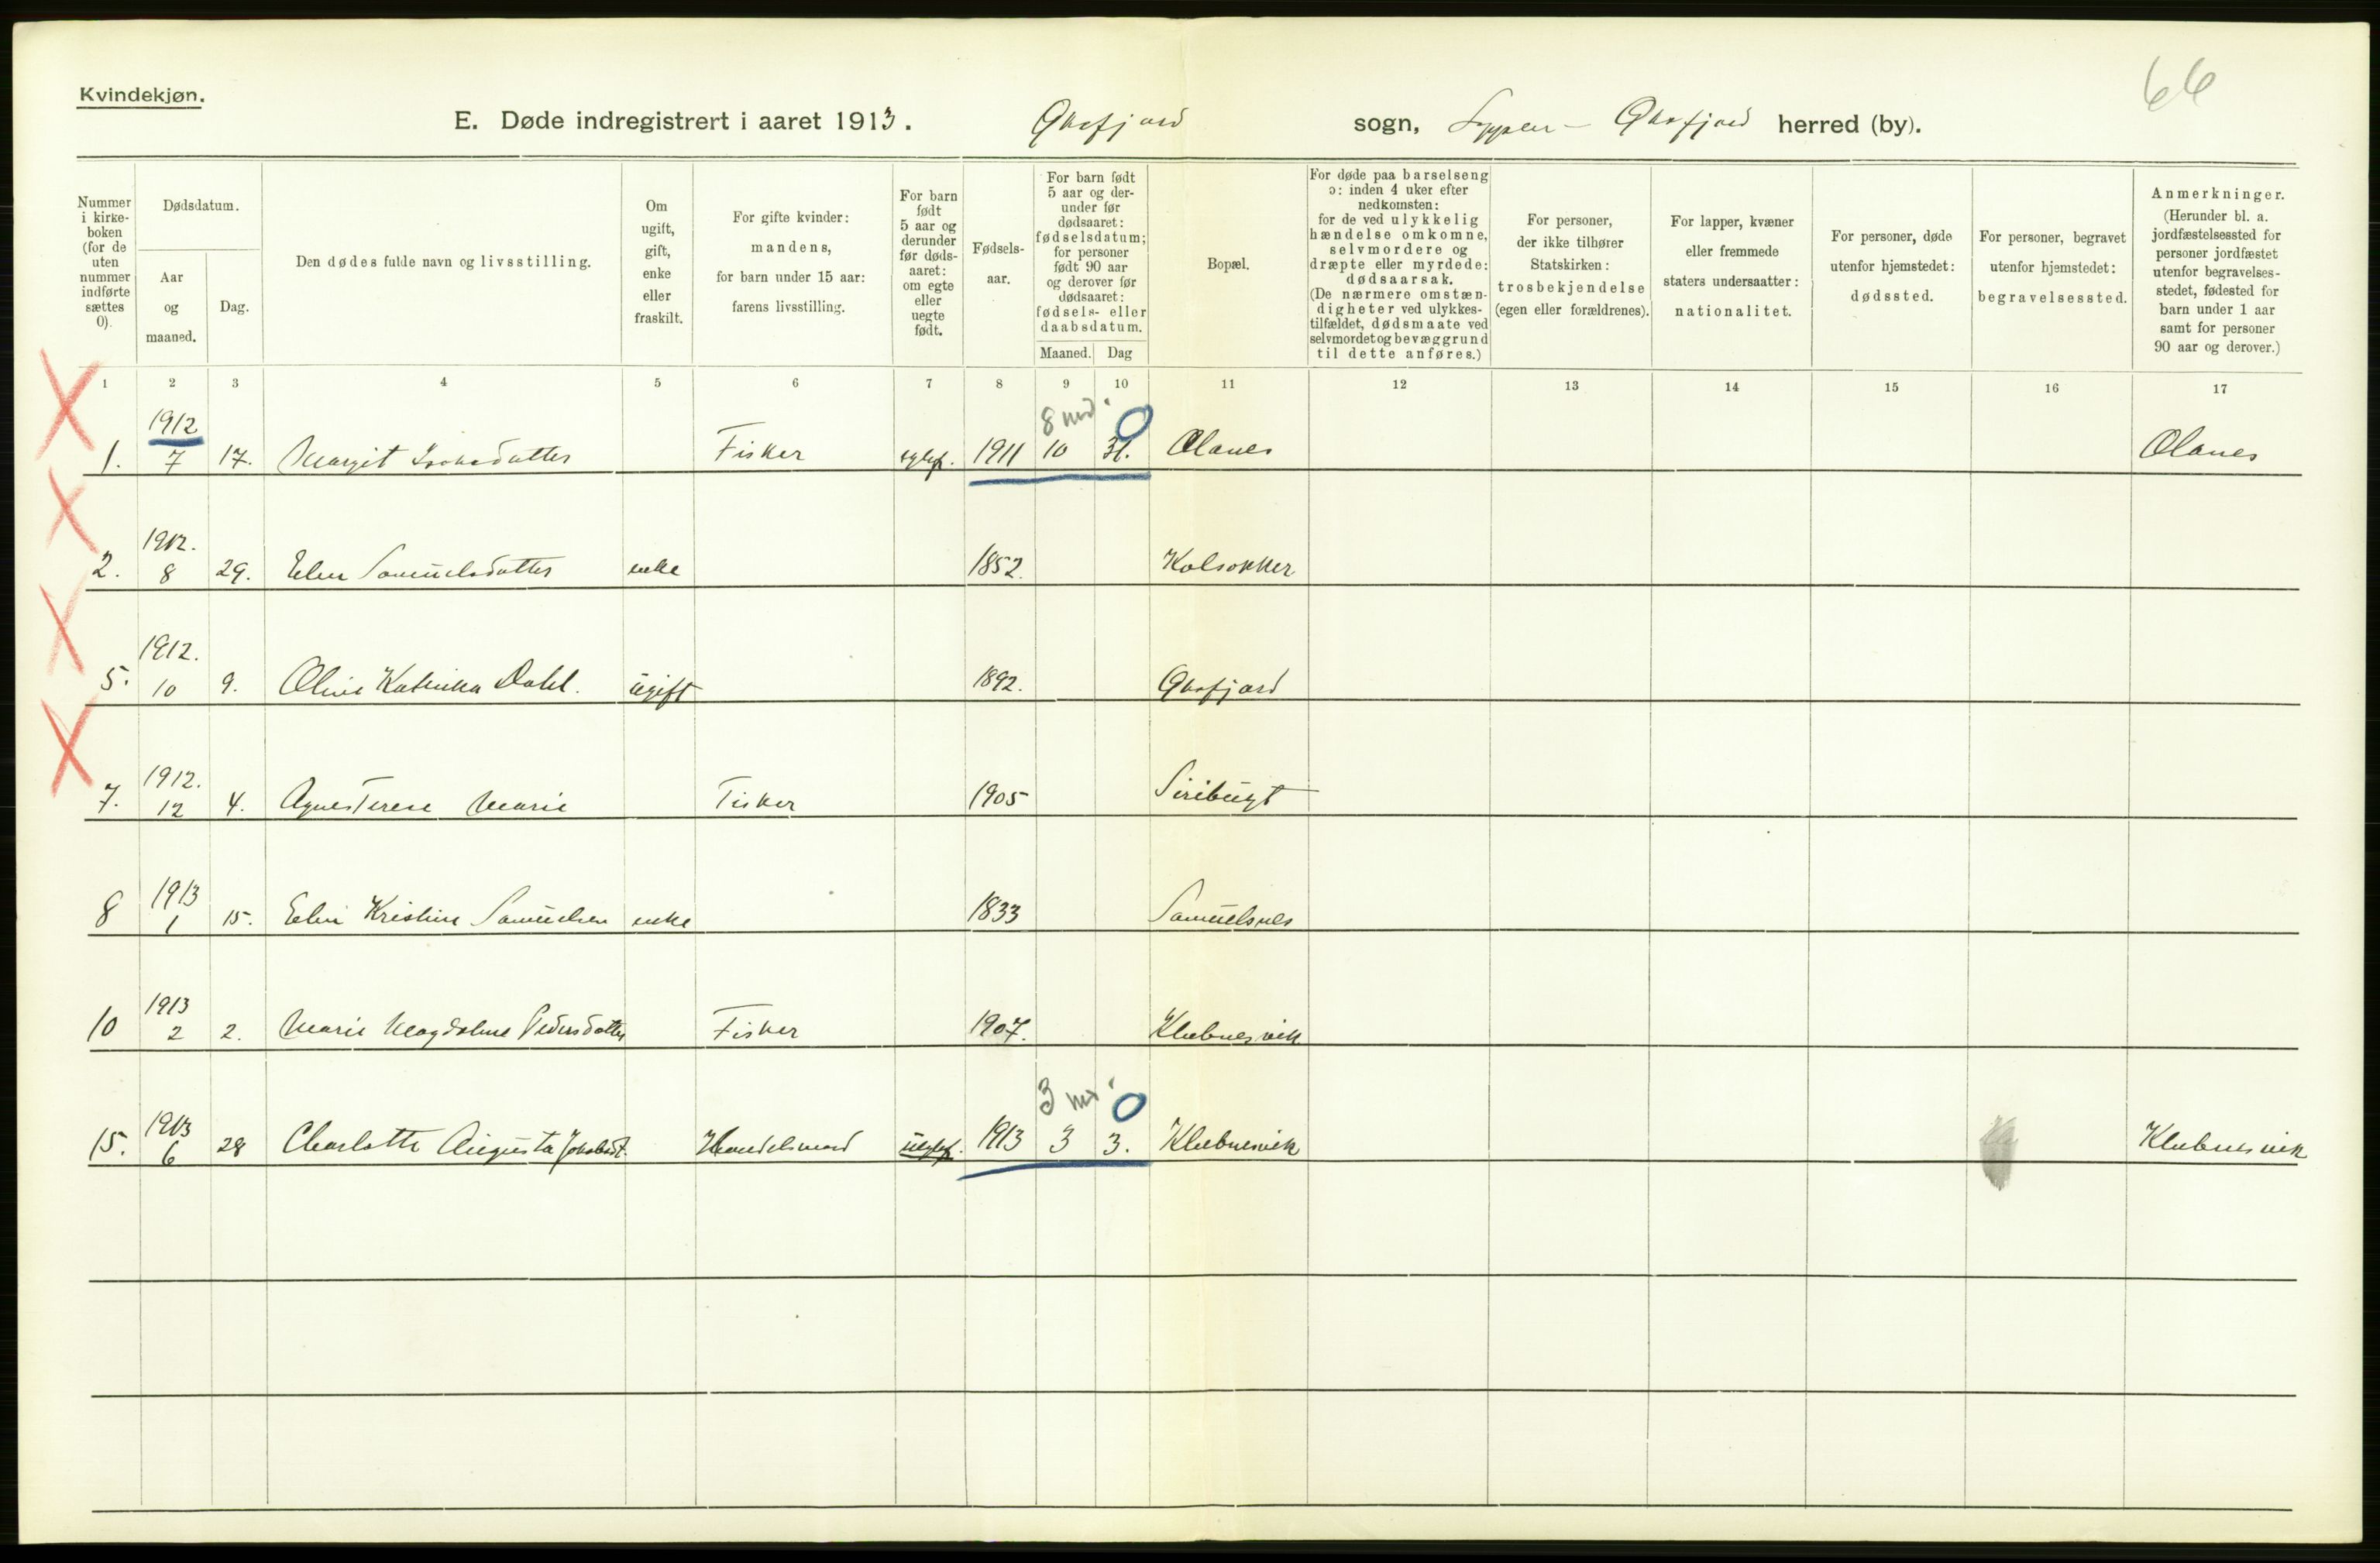 Kvindekjøn.
66
E. Døde indregistrert i aaret 1913. Øksfjord sogn, Loppen - Øksfjord herred (by).
Nummer i kirkeboken (for de uten nummer indførte sættes 0).
Dødsdatum.
Aar og maaned.
Dag.
Den dødes fulde navn og livsstilling.
Om ugift, gift, enke eller fraskilt.
For gifte kvinder: mandens, for barn under 15 aar: farens livsstilling.
For barn født 5 aar og derunder før dødsaaret: om egte eller uegte født.
Fødselsaar.
For barn født 5 aar og derunder før dødsaaret: fødselsdatum; for personer født 90 aar og derover før dødsaaret: fødsels- eller daabsdatum.
Maaned. Dag
Bopæl.
For døde paa barselseng ɔ: inden 4 uker efter nedkomsten: for de ved ulykkelig hændelse omkomne, selvmordere og dræpte eller myrdede: dødsaarsak. (De nærmere omstændigheter ved ulykkestilfældet, dødsmaate ved selvmordet og bevæggrund til dette anføres.)
For personer, der ikke tilhører Statskirken: trosbekjendelse (egen eller forældrenes).
For lapper, kvæner eller fremmede staters undersaatter: nationalitet.
For personer, døde utenfor hjemstedet: dødssted.
For personer, begravet utenfor hjemstedet: begravelsessted.
Anmerkninger. (Herunder bl. a. jordfæstelsessted for personer jordfæstet utenfor begravelsesstedet, fødested for barn under 1 aar samt for personer 90 aar og derover.)
1 2 3 4 5 6 7 8 9 10 11 12 13 14 15 16 17
1912 8 md. 0
1. 7 17. Margit Isaksdatter Fisker egtef. 1911 10 31. Olanes Olanes
1912.
2. 8 29. Elen Samuelsdatter enke 1852.
1912.
5. 10 9. Katinka Dahl. ugift 1892. Øksfjord
1912.
7. 12 4. Agnes Terese Marie Fisker 1905 Siribugt
1913
8 1 15. Kristine Samuelsen enke 1833 Samuelsnes
1913
10 2 2. Marie Magdalene Pedersdatter Fisker 1907. Klubnesvik
1913 3 md. 0
15. 6 28 Charlotte Augusta Jakobsdt. Handelsmand uegtef. 1913 3 3. Klubnesvik Klubnesvik